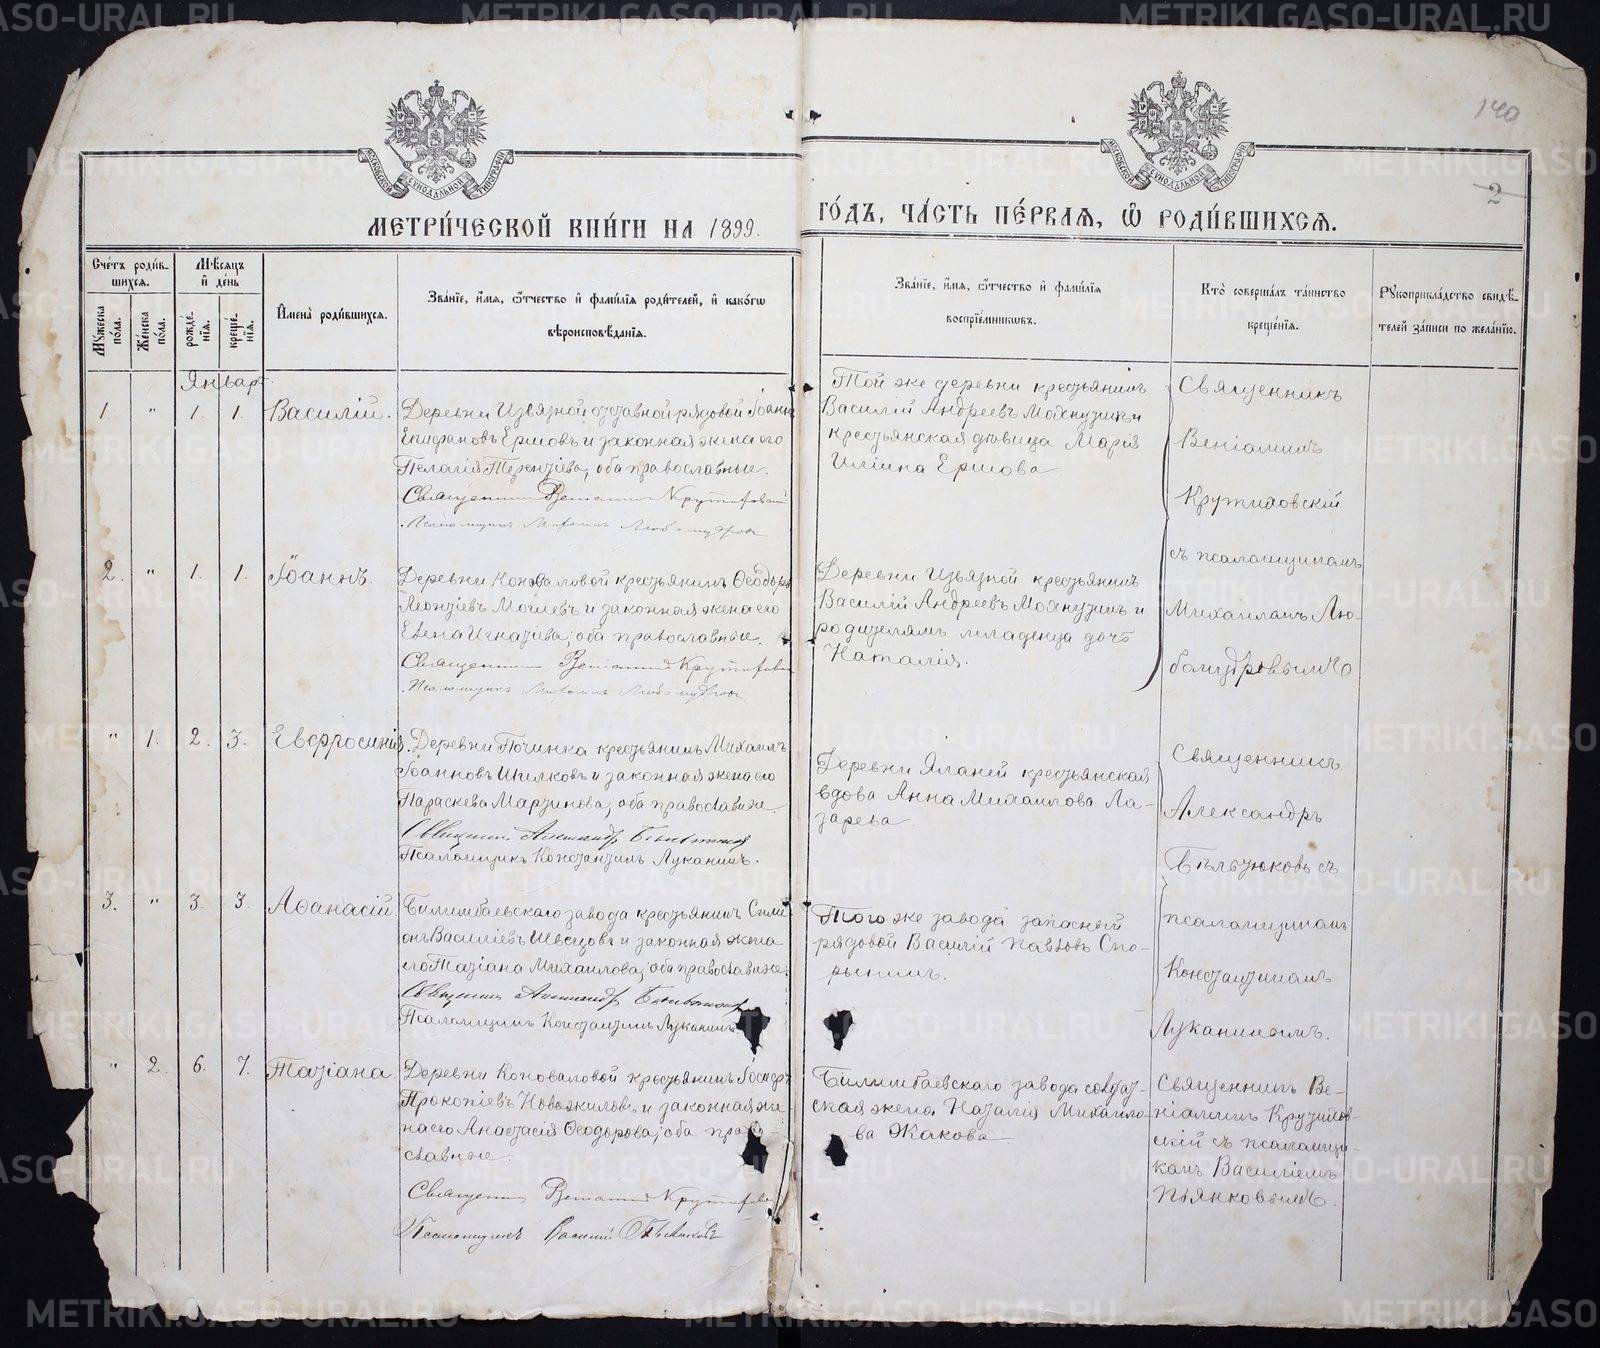 140
2
МОСКОВСКОЙ СѴНОДАЛЬНОЙ ТИПОГРАФІИ
МОСКОВСКОЙ СѴНОДАЛЬНОЙ ТИПОГРАФІИ
МЕТРИ́ЧЕСКОЙ КНИ́ГИ НА 1899.
ГО́ДЪ, ЧА́СТЬ ПЕ́РВАЯ, Ѽ РОДИ́ВШИХСЯ.
Сче́тъ роди́в-
шихся.
Мꙋжеска по́ла.
Же́нска по́ла.
Мѣ́сяцъ
и҆ де́нь
рожде́-
нїя.
креще́-
нїя.
И҆мена̀ роди́вшихся.
Зва́нїе, и҆́мя, ѻ҆́тчество и҆ фами́лїя роди́телей, и҆ како́гѡ
вѣроисповѣ́данїя.
Зва́нїе, и҆́мя, ѻ҆́тчество и҆ фами́лїя
воспрїе́мникѡвъ.
Кто̀ соверша́лъ та́инство
креще́нїя.
Рꙋкоприкла́дство свидѣ́-
телей за́писи по жела́нїю.
Январь.
1. " 1. 1. Василій.
Деревни Извязной отставной рядовой Іоаннъ
Епифановъ Ершовъ и законная жена его
Пелагія Терентіева, оба православные.
Священникъ Веніаминъ Крутиховскій
Псаломщикъ Михаилъ Любомудровъ
Той же деревни крестьянинъ
Василій Андреевъ Мохнуткинъ и
крестьянская дѣвица Марія
Иліина Ершова
Священникъ
Веніаминъ
Крутиховскій
съ псаломщикомъ
Михаиломъ Лю-
бомудровымъ
2. " 1. 1. Іоаннъ.
Деревни Коноваловой крестьянинъ Ѳеодоръ
Леонтіевъ Могилевъ и законная жена его
Елена Игнатіева, оба православные.
Священникъ Веніаминъ Крутиховскій
Псаломщикъ Михаилъ Любомудровъ
Деревни Извязной крестьянинъ
Василій Андреевъ Мохнуткинъ и
родителямъ младенца дочь
Наталія.
" 1. 2. 3. Евфросинія.
Деревни Починка крестьянинъ Михаилъ
Іоанновъ Шилковъ и законная жена его
Параскева Мартинова, оба православные
Священникъ Александръ Бѣльтюковъ
Псаломщикъ Константинъ Луканинъ.
Деревни Яланей крестьянская
вдова Анна Михаилова Ла-
зарева.
Священникъ
Александръ
Бѣльтюковъ съ
псаломщикомъ
Константиномъ
Луканинымъ.
3. " 3. 3. Аѳанасій
Билимбаевскаго завода крестьянинъ Симе-
онъ Василіевъ Швецовъ и законная жена
его Татіана Михаилова, оба православные.
Священникъ Александръ Бѣльтюковъ
Псаломщикъ Константинъ Луканинъ
Того же завода запасный
рядовой Василій Павловъ Спо-
рынинъ.
" 2. 6. 7. Татіана.
Деревни Коноваловой крестьянинъ Іосифъ
Прокопіевъ Новожиловъ и законная же
на его Анастасія Ѳеодорова, оба право
славные.
Священникъ Веніаминъ Крутиховскій
Псаломщикъ Василій Пьянковъ
Билимбаевскаго завода солдат-
ская жена Наталія Михаило-
ва Жакова
Священникъ Ве-
ніаминъ Крутихов-
скій съ псаломщи-
комъ Василіемъ
Пьянковымъ.